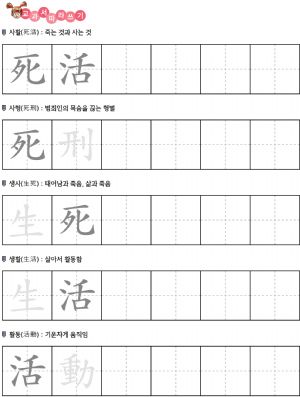 교과서 따라쓰기
사활(死活) : 죽는 것과 사는 것
死 活
사형(死刑) : 범죄인의 목숨을 끊는 형벌
死 刑
생사(生死) : 태어남과 죽음, 삶과 죽음
生 死
생활(生活) : 살아서 활동함
生 活
활동(活動) : 기운차게 움직임
活 動